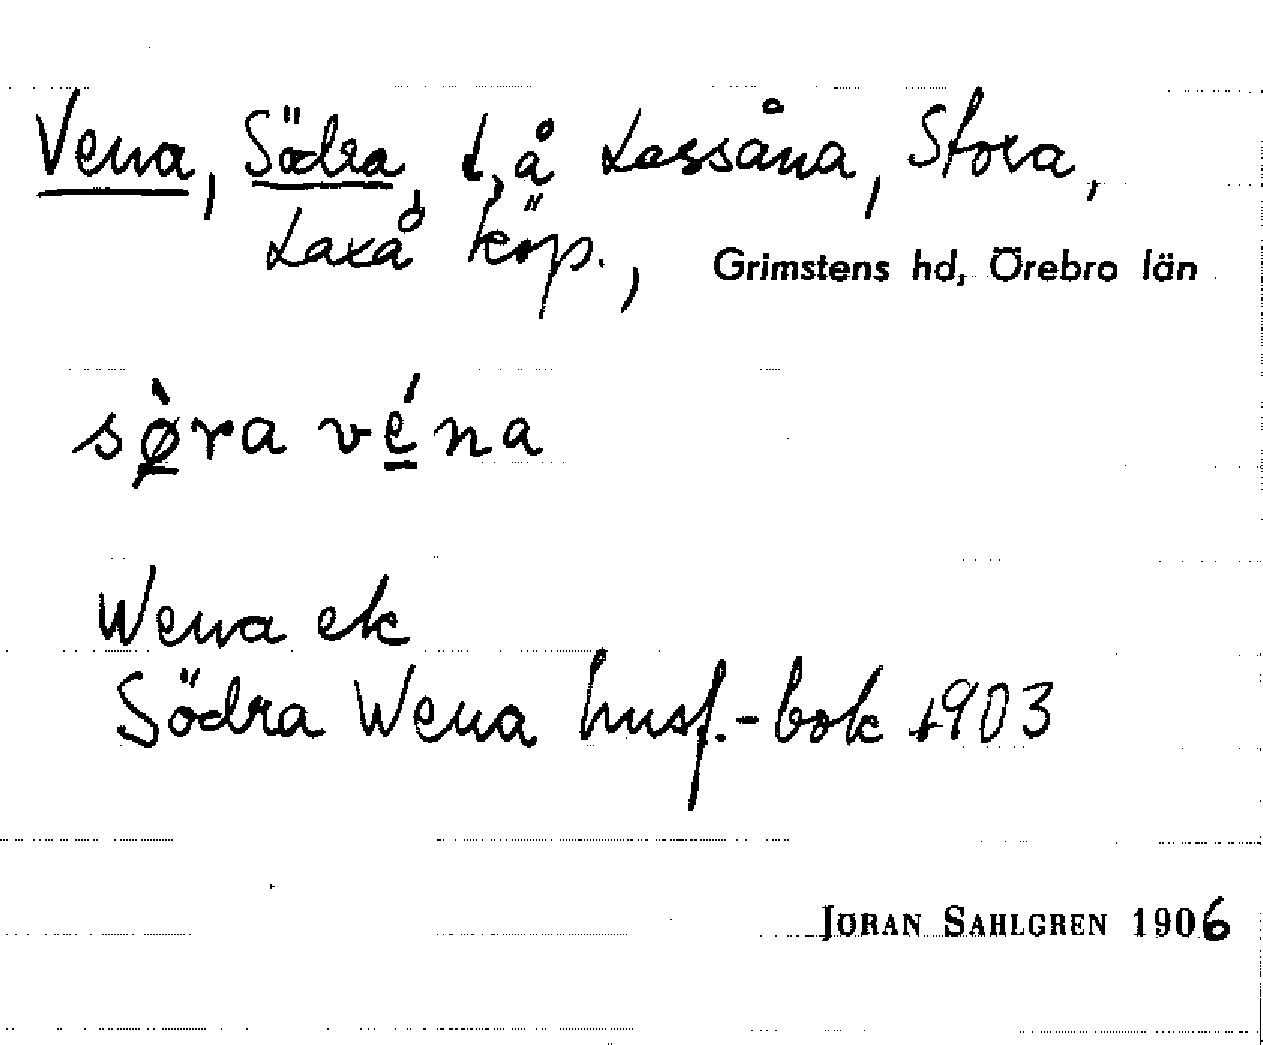 Vena, Södra, t, å Lassåna, Stora,
Laxå köp., Grimstens hd, Örebro län
sø̀ra véna
Wena ek
Södra Wena husf.-bok 1903
JÖRAN SAHLGREN 1906